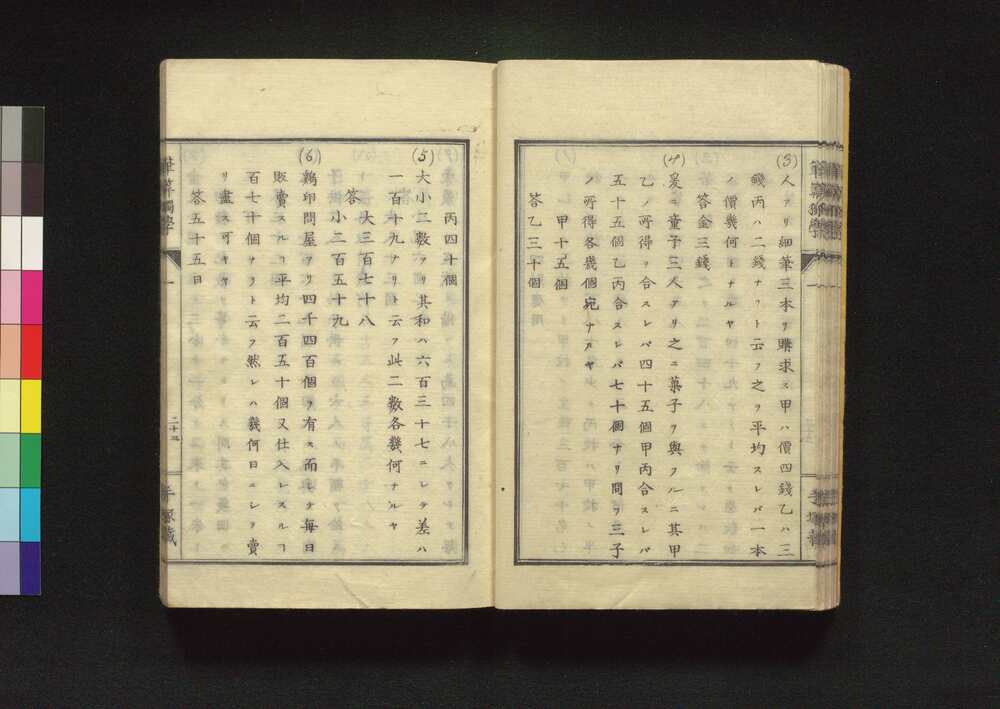 (3)人アリ細筆三本ヲ購求ス甲ハ價四錢乙ハ三
錢丙ハ二錢ナリト云フ之ヲ平均スレバ一本
ノ價幾何トナルヤ
答金三錢
(4)爰ニ童子三人アリ之ニ菓子ヲ與フルニ其甲
乙ノ所得ヲ合スレバ四十五個甲丙合スレバ
五十五個乙丙合スレバ七十個ナリ問フ三子
ノ所得各幾個宛ナルヤ
甲十五個
答乙三十個
丙四十個
(5)大小二數アリ其和ハ六百三十七ニシテ差ハ
一百十九ナリト云フ此二數各幾何ナルヤ
大三百七十八
答
小二百五十九
(6)鶏卵問屋アリ四千四百個ヲ有ス而シテ毎日
販賣スルヿ平均二百五十個又仕入レスルヿ
百七十個ヅヽト云フ然レハ幾何日ニシテ賣
リ盡ス可キヤ
答五十五日
筆算獨學
一
二十三